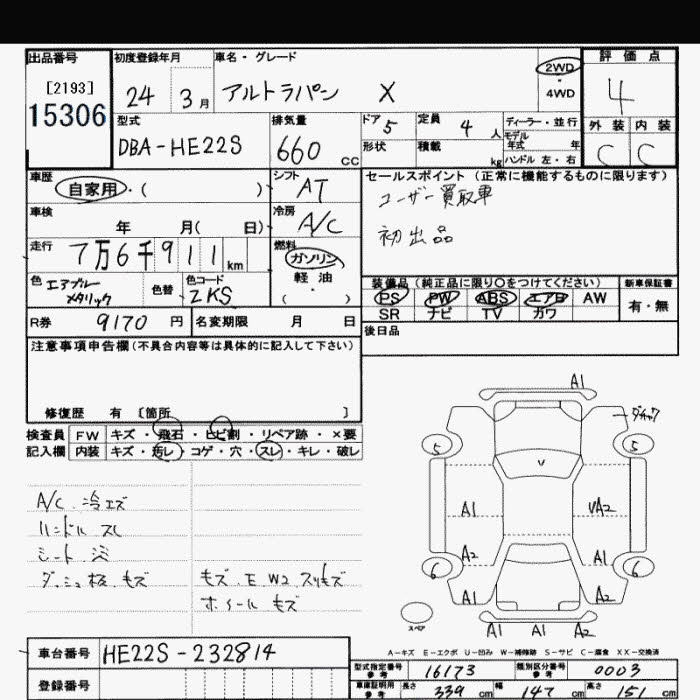 出品番号
[2193]
15306
初度登録年月
24 3月
車名・グレード
アルトラパン X
2WD
・
4WD
評価点
4
外装 内装
C C
型式
DBA-HE22S
排気量
660 CC
ドア 5
定員 4 人
形状
積載 kg
ディーラー・並行
モデル年式 年
ハンドル 左・右
車歴
自家用・( )
シフト
AT
車検
年 月( 日)
冷房
A/C
走行
7万6千911km
燃料
ガソリン
軽油
・
( )
色 エアブルー
メタリック
色替
色コード
ZKS
セールスポイント(正常に機能するものに限ります)
ユーザー買取車
初出品
装備品(純正品に限り○をつけてください)
PS PW ABS エアB AW
SR ナビ TV カワ
新車保証書
有・無
R券 9170 円
名変期限 月 日
後日品
注意事項申告欄(不具合内容等は具体的に記入して下さい)
修復歴 有 〔箇所 〕
検査員 FW キズ・飛石・ヒビ割・リペア跡・×要
記入欄 内装 キズ・汚レ・コゲ・穴・スレ・キレ・破レ
A/C 冷エズ
ハンドル スレ
シート
ダッシュ板 キズ
キズ.E W2 スリキズ
ホイール キズ
A1
5 5
A1 VA2
A2 A1
6 6
A1 A2
スペア
A1 A1 A2
A-キズ E-エクボ U-凹み W-補修跡 S-サビ C-腐食 XX-交換済
車台番号 HE22S-232814
登録番号
型式指定番号 参考 16173
類別区分番号 参考 0003
車庫証明用 参考 長さ 339 cm 幅 147 cm 高さ 151 cm